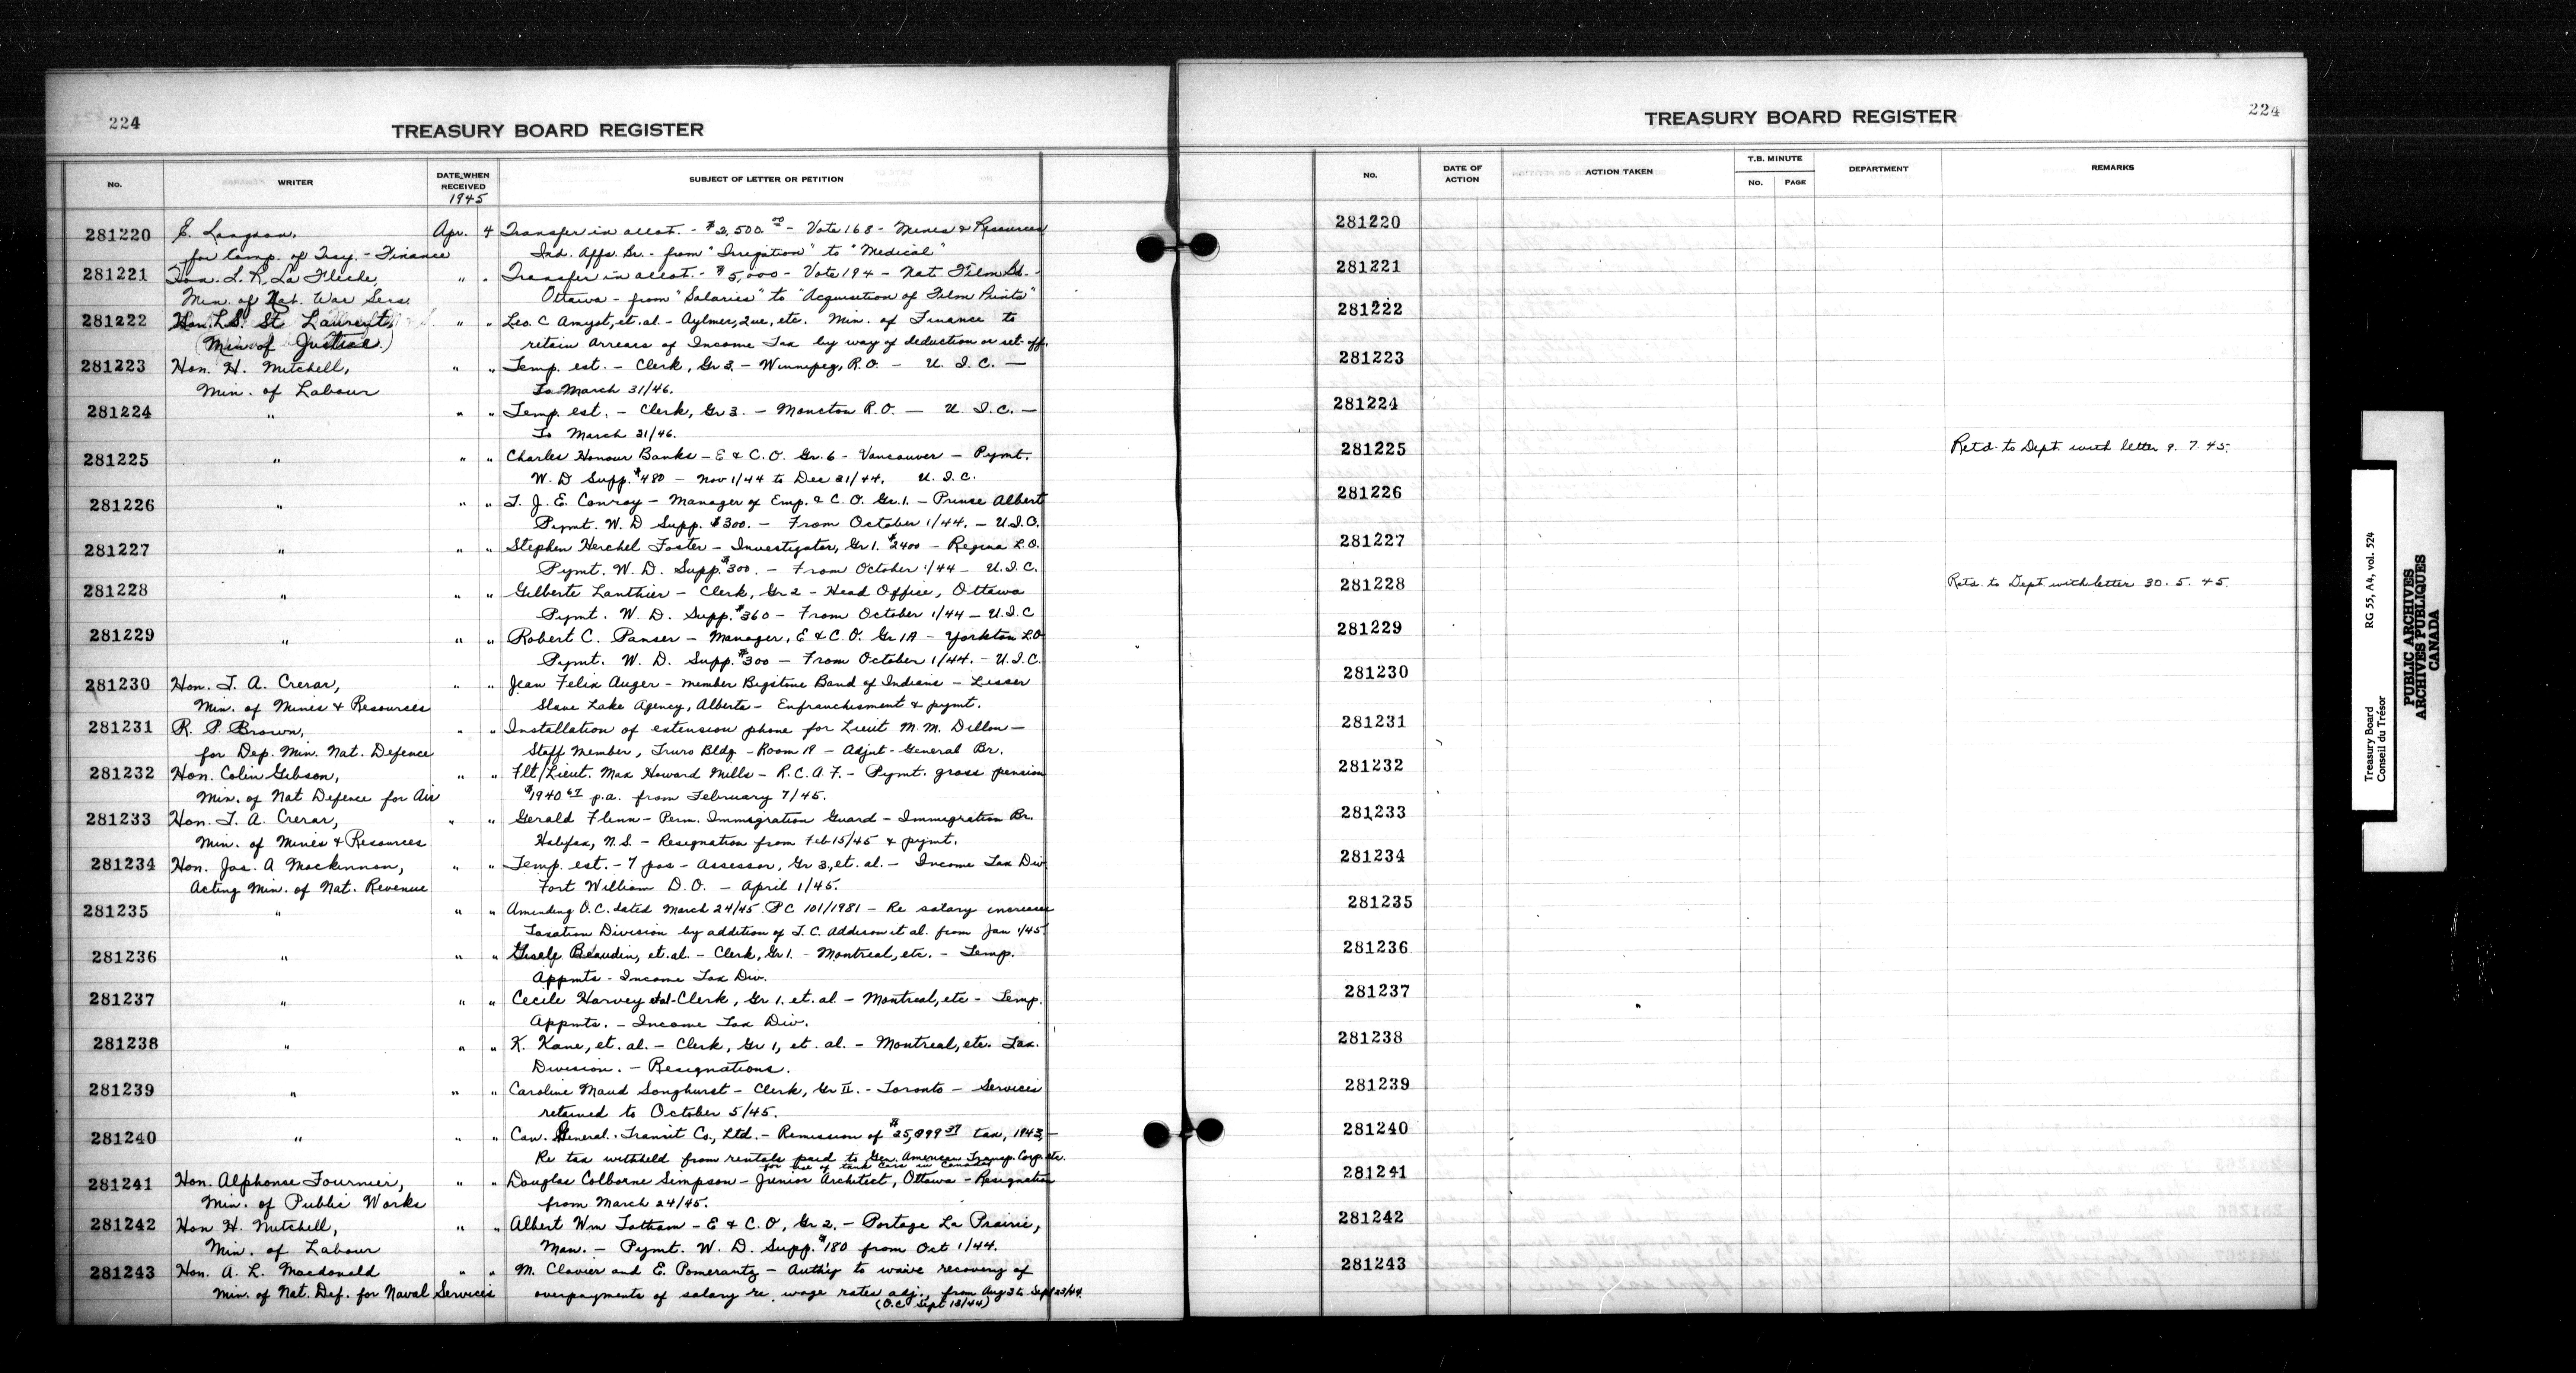 224
TREASURY BOARD REGISTER
No. WRITER DATE WHEN RECEIVED 1945 SUBJECT OF LETTER OR PETITION
281220 E. Langdon, Apr. 4 Transfer in allot. - $2,500.00 - Vote 168 - Mines & Resources
for Comp. of Tsy. - Finance Ind. Affs. Br. - from "Irrigation" to "Medical"
281221 Hon. L. R. La Fleche, " " Transfer in allot. - $5,000 - Vote 194 - Nat. Film Bd. -
Min. of Nat. War Sers. Ottawa - from "Salaries" to "Acquisition of Film Prints"
281222 Hon. L.S. St Laurent, " " Leo. C Amyot, et. al. - Aylmer, Que, etc. Min. of Finance to
(Min of Justice.) retain arrears of Income Tax by way of deduction or set-off.
281223 Hon. H. Mitchell, " " Temp. est. - Clerk, Gr 3. - Winnipeg, R.O. - U. I. C. -
Min. of Labour To March 31/46.
281224 " " " Temp. est. - Clerk, Gr 3. - Moncton R.O. - U. I. C. -
To March 31/46.
281225 " " " Charles Honour Banks - E & C.O. Gr. 6 - Vancouver - Pymt.
W. D Supp. $480 - Nov 1/44 to Dec 31/44. U. I. C.
281226 " " " T. J. E. Conroy - Manager of Emp. & C. O. Gr. 1. - Prince Albert
Pymt. W. D Supp. $300. - From October 1/44. - U.I.C.
281227 " " " Stephen Herchel Foster - Investigator, Gr 1. $2400 - Regina L.O.
Pymt. W. D. Supp. $300. - From October 1/44 - U.I.C.
281228 " " " Gilberte Lanthier - Clerk, Gr 2 - Head Office, Ottawa
Pymt. W. D. Supp. $360 - From October 1/44 - U.I.C
281229 " " " Robert C. Panser - Manager, E & C.O. Gr 1A - Yorkton L.O
Pymt. W. D. Supp. $300 - From October 1/44. - U.I.C.
281230 Hon. T. A. Crerar, " " Jean Felix Auger - member Bigstone Band of Indians - Lesser
Min. of Mines & Resources Slave Lake Agency, Alberta - Enfranchisment & pymt.
281231 R. P. Brown, " " Installation of extension phone for Lieut M. M. Dillon -
for Dep. Min. Nat. Defence Staff Member, Truro Bldg - Room 19 - Adjut - General Br.
281232 Hon. Colin Gibson, " " Flt/Lieut. Max Howard Mills - R.C.A.F. - Pymt. gross pension
Min. of Nat Defence for Air $1940 67 p.a. from February 7/45.
281233 Hon. T. A. Crerar, " " Gerald Flinn - Perm. Immigration Guard - Immigration Br.
Min. of Mines & Resources Halifax, N.S. - Resignation from Feb 15/45 & pymt.
281234 Hon. Jas. A Mackinnon, " " Temp. est. - 7 pos - Assessor, Gr 3, et. al. - Income Tax Div
Acting Min. of Nat. Revenue Fort William D.O. - April 1/45.
281235 " " " Amending O.C. dated March 24/45. PC 101/1981 - Re salary increases
Taxation Division by addition of T. C. Addison et al. from Jan 1/45.
281236 " " " Gisele Beaudin, et. al. - Clerk, Gr 1. - Montreal, etc. - Temp.
Appmts - Income Tax Div.
281237 " " " Cecile Harvey - Clerk, Gr 1. et. al - Montreal, etc - Temp.
Appmts. - Income Tax Div.
281238 " " " K. Kane, et. al. - Clerk, Gr 1, et. al. - Montreal, etc. Tax.
Division. - Resignations.
281239 " " " Caroline Maud Songhurst - Clerk, Gr II. - Toronto - Services
retained to October 5/45.
281240 " " " Can. General Transit Co., Ltd. - Remission of tax, 1943,
Re tax withheld from rentals paid to Gen. American Transp. Corp. etc.
for use of tank cars in Canada
281241 Hon. Alphonse Fournier, " " Douglas Colborne Simpson - Junior Architect, Ottawa - Resignation
Min. of Public Works from March 24/45.
281242 Hon H. Mitchell, " " Albert Wm Tatham - E & C.O, Gr 2. - Portage La Prairie,
Min. of Labour Man. - Pymt. W. D. Supp. $180 from Oct 1/44.
281243 Hon. A. L. Macdonald " " M. Clavier and E. Pomerantz - Auth'y to waive recovery of
Min. of Nat. Def. for Naval Services overpayments of salary re wage rates adj., from Aug 3 to Sept 23/44.
(O.C. Sept 13/44)
224
TREASURY BOARD REGISTER
No. DATE OF ACTION ACTION TAKEN T.B. MINUTE No. PAGE DEPARTMENT REMARKS
281220
281221
281222
281223
281224
281225 Retd. to Dept. with letter 9. 7. 45.
281226
281227
281228 Retd. to Dept. with letter 30. 5. 45.
281229
281230
281231
281232
281233
281234
281235
281236
281237
281238
281239
281240
281241
281242
281243
Treasury Board RG 55, A4, vol. 524
Conseil du Trésor
PUBLIC ARCHIVES
ARCHIVES PUBLIQUES
CANADA